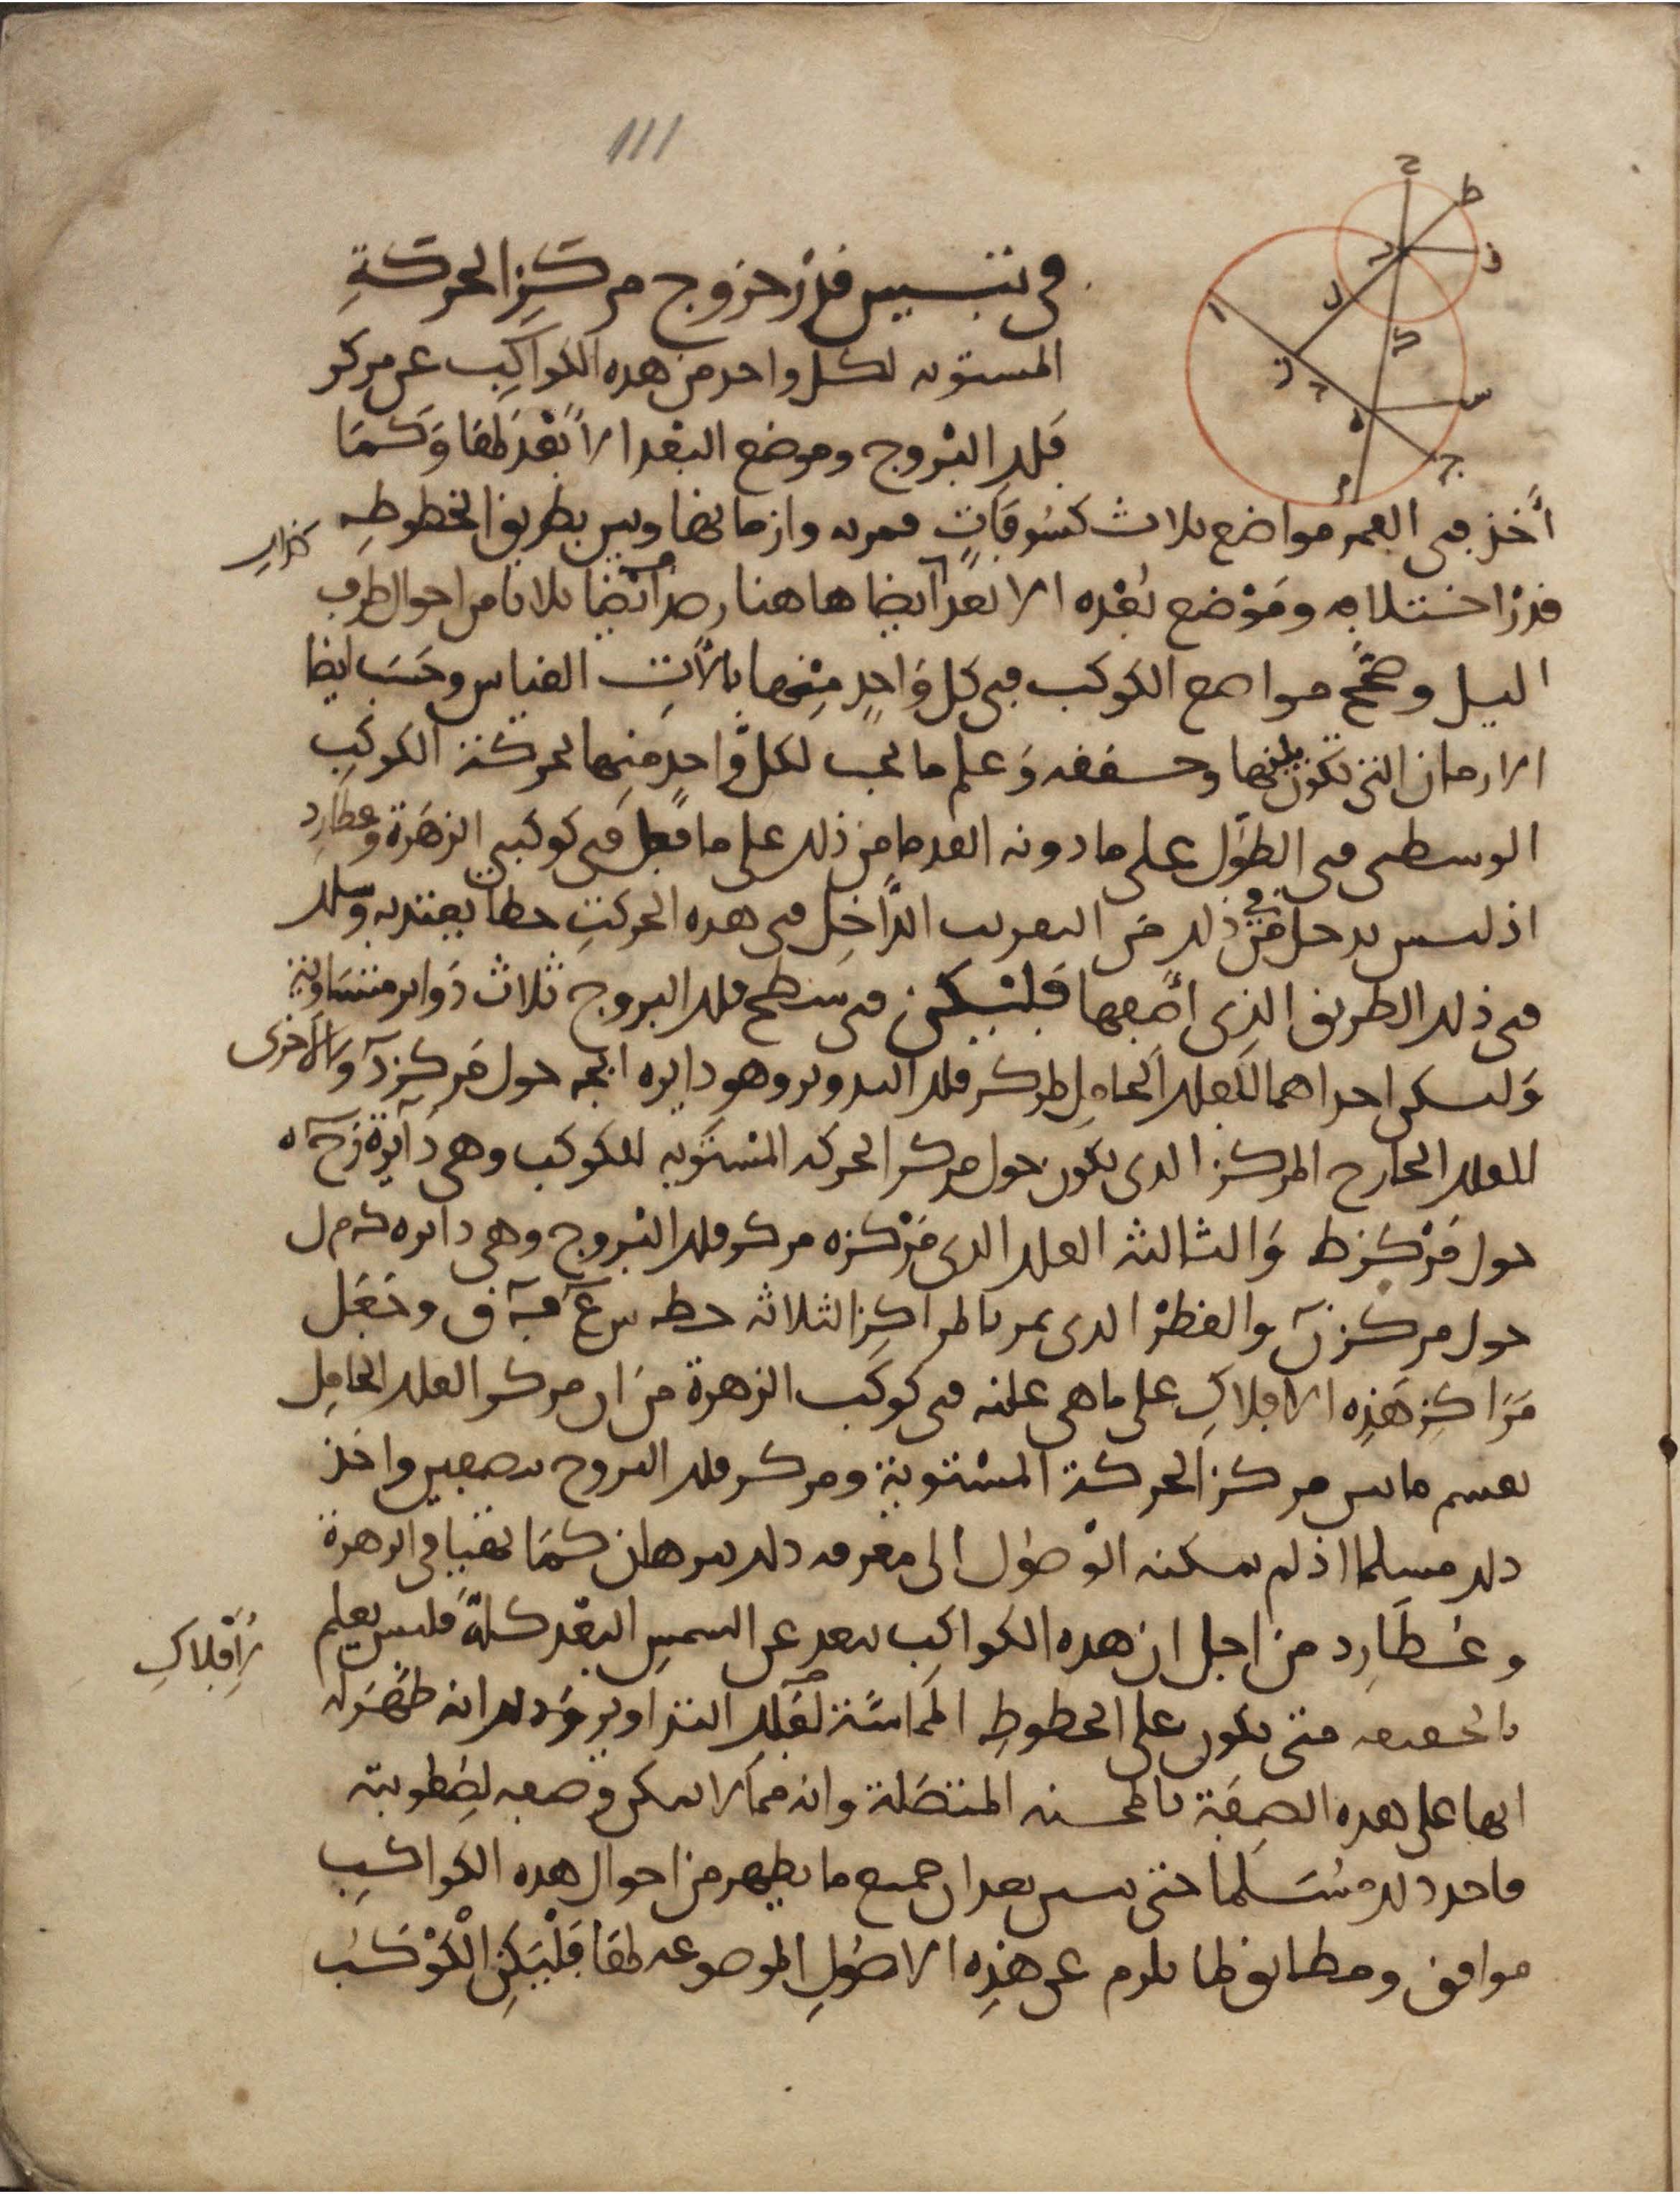 111
في تبيين قدر خروج مركز الحركة
المستويه لكل واحد من هذه الكواكب عن مركز
فلك البروج وموضع البعد الابعد لها وكما
اخذ في القمر مواضع ثلاث كسوفات قمريه وازمانها وبين بطريق الخطوط
كذلك
قدر اختلافه وموضع بعده الابعد ايضا هاهنا رصد ايضا ثلاثا من احوال طرف
الليل وصحح مواضع الكوكب في كل واحد منها بالات القياس وحسب ايضا
الازمان التي تكون بينها وحققه وعلم ما يجب لكل واحد منها لحركة الكوكب
الوسطى في الطول على ما دونه القدما من ذلك على ما فعل في كوكبي الزهرة وعطارد
اذ ليس يدخل في ذلك من التقريب الداخل في هذه الحركة خطا يعتد به وسلك
في ذلك الطريق الذي اصفها فليكن في سطح فلك البروج ثلاث دواير متساوية
وليكن احداهما للفلك الحامل لمركز فلك التدوير وهو دايره ابجه حول مركز د والاخرى
للفلك الخارج المركز الذي يكون حول مركز الحركه المستويه للكوكب وهي دايرة زح ه
حول مركز ط والثالثة الفلك الذي مركزه مركز فلك البروج وهي دايره ك م ل
حول مركز ن والقطر الذي يمر بالمراكز الثلاثه خط س ع ف ق وجعل
مراكز هذه الافلاك على ما هي عليه في كوكب الزهرة من ان مركز الفلك الحامل
يقسم ما بين مركز الحركة المستوية ومركز فلك البروج بنصفين واخذ
ذلك مسلما اذ لم يمكنه الوصول الى معرفه ذلك ببرهان كما تهيا في الزهرة
وعطارد من اجل ان هذه الكواكب تبعد عن الشمس البعد كله فليس يعلم
لافلاك
بالحقيقه متى يكون على الخطوط المماسة لفلك التداوير وذلك انه ظهر له
انها على هذه الصفة بالمحسنه المتصلة وانه مما لا يمكن وصفه لصعوبته
فاخذ ذلك مسلما حتى يبين بعد ان جميع ما يظهر من احوال هذه الكواكب
موافق ومطابق لما يلزم عن هذه الاصول الموضوعه لها فليكن الكوكب